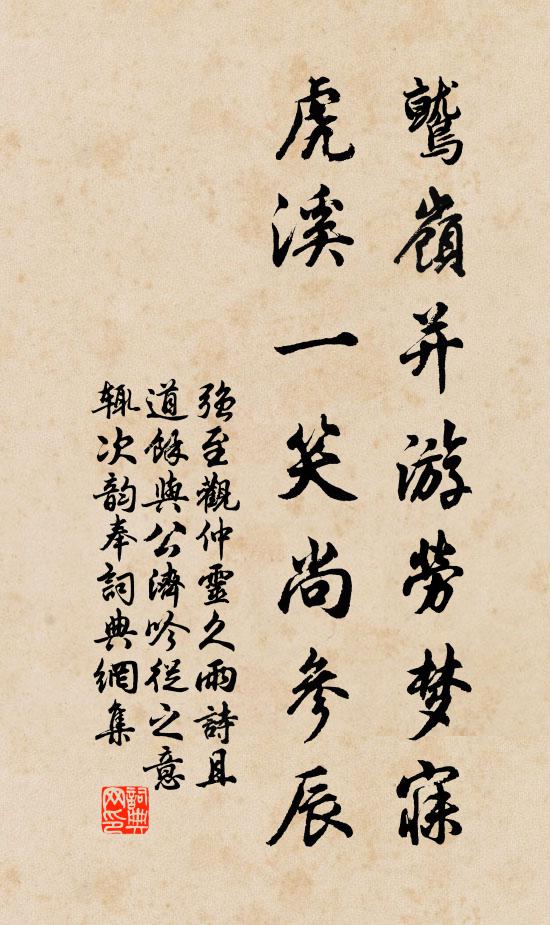 鷲嶺并游勞梦寐
虎溪一笑尚參辰
强至觀仲靈久雨詩且
道餘與公濟吟從之意
輒次韵奉詞典網集
詞典
网印